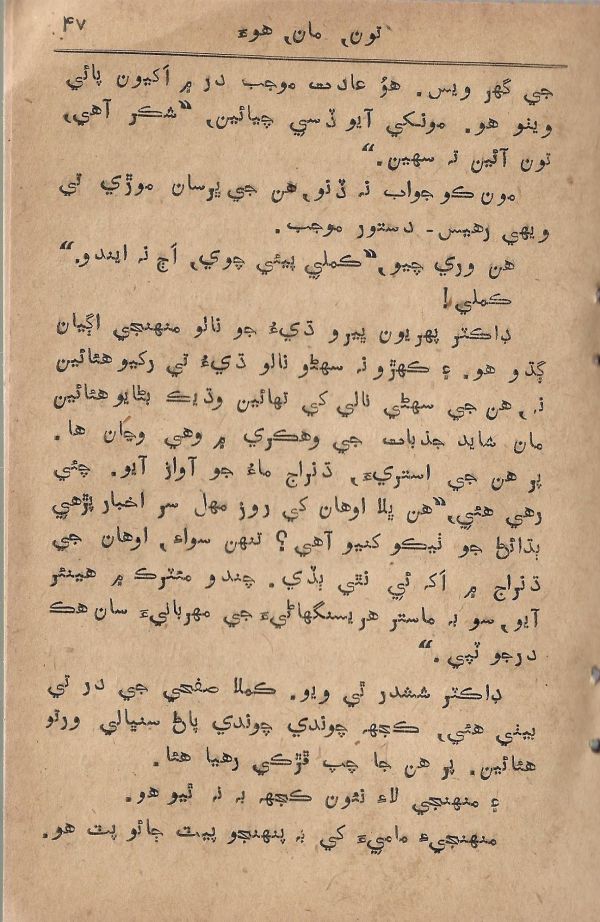 تون, مان, هوءَ ۴۷
جي گهر ويس. هوُ عادت موجب در ۾ اَکيون پائي
ويٺو هو. مونکي آيو ڏسي چيائين, “شڪر آهي,
تون آئين ته سهين.“
مون ڪو جواب نه ڏنو, هن جي ڀرسان موڙي تي
ويهي رهيس- دستور موجب.
هن وري چيو, “ڪملي پيئي چوي, اَڄ نه ايندو.“
ڪملي!
ڊاڪٽر پهريون ڀيرو ڌيءُ جو نالو منهنجي اڳيان
ڳنڍو هو. ۽ ڪهڙو نه سهڻو نالو ڌيءُ تي رکيو هئائين
نه, هن جي سهڻي نالي کي تهائين وڌيڪ بڻايو هئائين
مان شايد جذبات جي وهڪري ۾ وهي وڃان ها.
پر هن جي استريءَ, ڌنراج ماءُ جو آواز آيو. چئي
رهي هئي, “هن ڀلا اوهان کي روز مهل سر اخبار پڙهي
ٻڌائڻ جو ٺيڪو کنيو آهي؟ تنهن سواءِ, اوهان جي
ڌنراج ۾ اَک ئي نٿي ٻڏي. چندو مئٽرڪ ۾ هينئر
آيو, سو به ماستر هربسنگهاڻيءَ جي مهربانيءَ سان هڪ
درجو ٽپي.“
ڊاڪٽر ششدر ٿي ويو. ڪملا صفحي جي در تي
بيٺي هئي, ڪجهه چوندي چوندي پاڻ سنڀالي ورتو
هئائين. پر هن جا چپ ڦڙڪي رهيا هئا.
۽ منهنجي لاءِ نئون ڪجهه به نه ٿيو هو.
منهنجيءَ ماميءَ کي به پنهنجو پيٽ ڄائو پٽ هو.